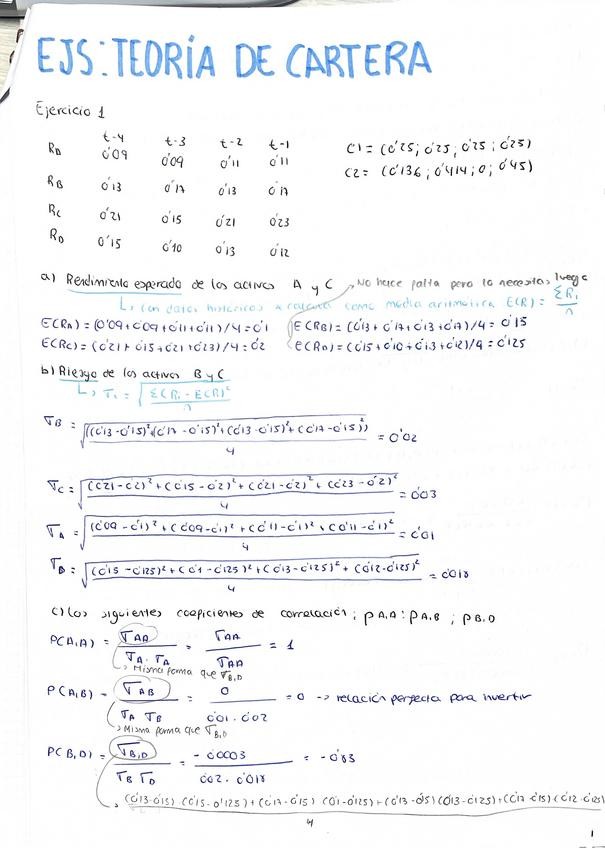 EJS: TEORÍA DE CARTERA
Ejercicio 1
t-4 t-3 t-2 t-1
RA 0'09 0'09 0'11 0'11
RB 0'13 0'17 0'13 0'17
RC 0'21 0'15 0'21 0'23
RD 0'15 0'10 0'13 0'12
C1 = (0'25; 0'25; 0'25; 0'25)
C2 = (0'136; 0'414; 0; 0'45)
a) Rendimiento esperado de los activos A y C → No hace falta pero lo necesitas luego
↳ Con datos históricos → calcula como media aritmética E(R) = ΣRi / n
E(RA) = (0'09+0'09+0'11+0'11)/4 = 0'1
E(RB) = (0'13+0'17+0'13+0'17)/4 = 0'15
E(RC) = (0'21+0'15+0'21+0'23)/4 = 0'2
E(RD) = (0'15+0'10+0'13+0'12)/4 = 0'125
b) Riesgo de los activos B y C
↳ σi = √(Σ(Ri - E(R))² / n)
σB = √(((0'13-0'15)²+(0'17-0'15)²+(0'13-0'15)²+(0'17-0'15)²) / 4) = 0'02
σC = √((0'21-0'2)²+(0'15-0'2)²+(0'21-0'2)²+(0'23-0'2)² / 4) = 0'03
σA = √((0'09-0'1)²+(0'09-0'1)²+(0'11-0'1)²+(0'11-0'1)² / 4) = 0'01
σD = √((0'15-0'125)²+(0'1-0'125)²+(0'13-0'125)²+(0'12-0'125)² / 4) = 0'018
c) Los siguientes coeficientes de correlación: ρA,A; ρA,B; ρB,D
ρ(A,A) = σAA / σA·σA = σAA / σAA = 1
↳ Misma forma que σB,D
ρ(A,B) = σAB / σA σB = 0 / 0'01·0'02 = 0 → relación perfecta para invertir
↳ Misma forma que σB,D
ρ(B,D) = σB,D / σB σD = -0'0003 / 0'02·0'018 = -0'83
↳ (0'13-0'15)·(0'15-0'125)+(0'17-0'15)(0'1-0'125)+(0'13-0'15)(0'13-0'125)+(0'17-0'15)(0'12-0'125)
4
1